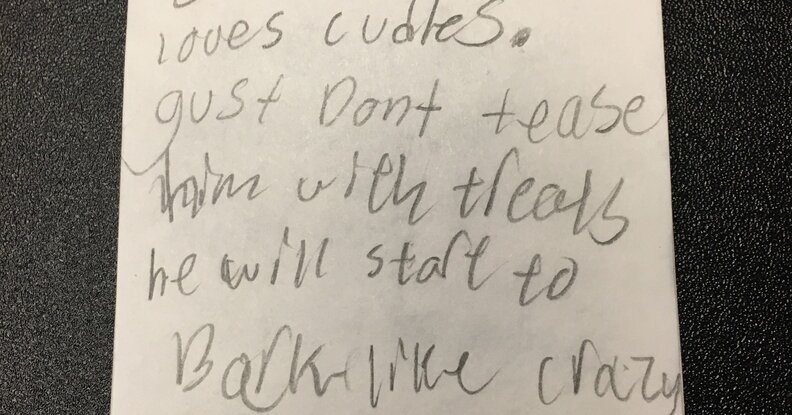 loves cudles.
gust Dont tease
him with treats
he will start to
Bark like crazy